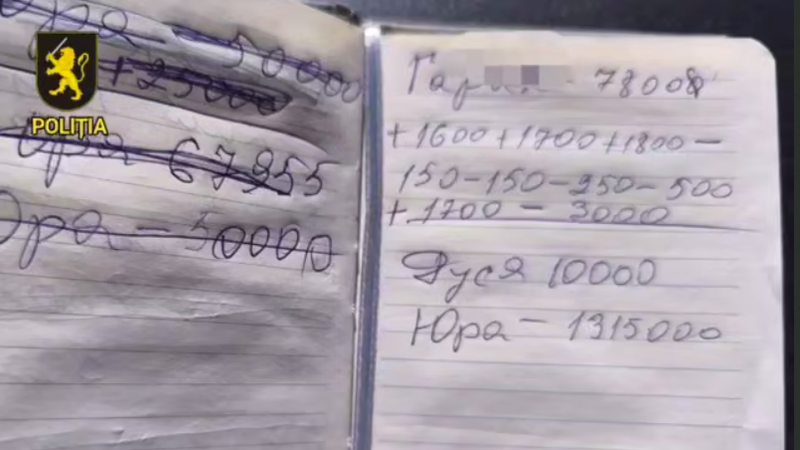 POLIȚIA
Юра - 50000
+25000
Юра 67955
Юра - 50000
- 78000
+1600+1700+1800-
150-150-250-500
+1700 - 3000
Дуся 10000
Юра - 1315000